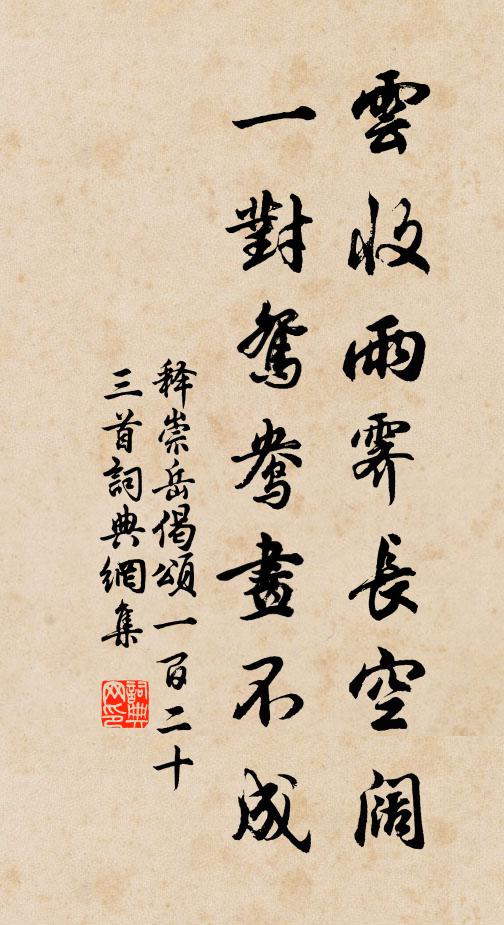 雲收雨霽長空闊
一對鴛鴦畫不成
释崇岳偈頌一百二十
三首詞典網集
詞典
网印